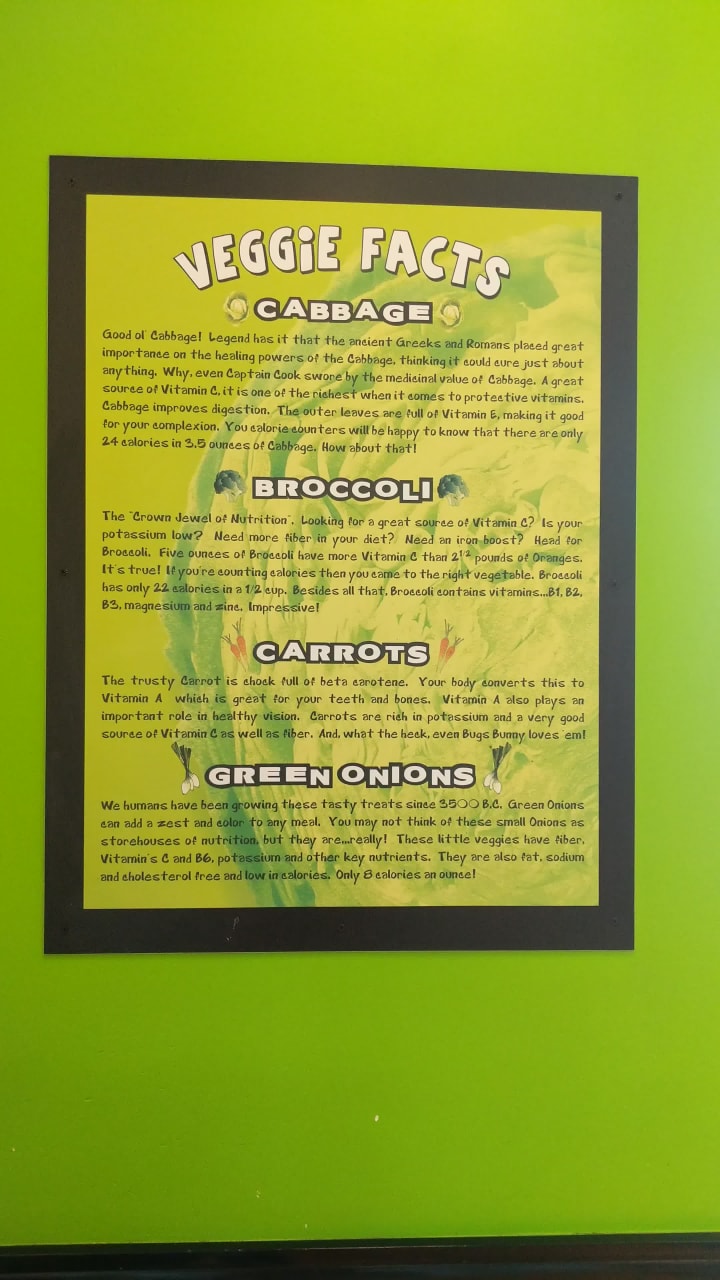 VEGGiE FACTS
CABBAGE
Good ol' Cabbage! Legend has it that the ancient Greeks and Romans placed great
importance on the healing powers of the Cabbage, thinking it could cure just about
anything. Why, even Captain Cook swore by the medicinal value of Cabbage. A great
source of Vitamin C, it is one of the richest when it comes to protective vitamins.
Cabbage improves digestion. The outer leaves are full of Vitamin E, making it good
for your complexion. You calorie counters will be happy to know that there are only
24 calories in 3.5 ounces of Cabbage. How about that!
BROCCOLI
The "Crown Jewel of Nutrition". Looking for a great source of Vitamin C? Is your
potassium low? Need more fiber in your diet? Need an iron boost? Head for
Broccoli. Five ounces of Broccoli have more Vitamin C than 2 1/2 pounds of Oranges.
It's true! If you're counting calories then you came to the right vegetable. Broccoli
has only 22 calories in a 1/2 cup. Besides all that, Broccoli contains vitamins...B1, B2,
B3, magnesium and zinc. Impressive!
CARROTS
The trusty Carrot is chock full of beta carotene. Your body converts this to
Vitamin A which is great for your teeth and bones. Vitamin A also plays an
important role in healthy vision. Carrots are rich in potassium and a very good
source of Vitamin C as well as fiber. And, what the heck, even Bugs Bunny loves 'em!
GREEN ONIONS
We humans have been growing these tasty treats since 3500 B.C. Green Onions
can add a zest and color to any meal. You may not think of these small Onions as
storehouses of nutrition, but they are...really! These little veggies have fiber,
Vitamin's C and B6, potassium and other key nutrients. They are also fat, sodium
and cholesterol free and low in calories. Only 8 calories an ounce!